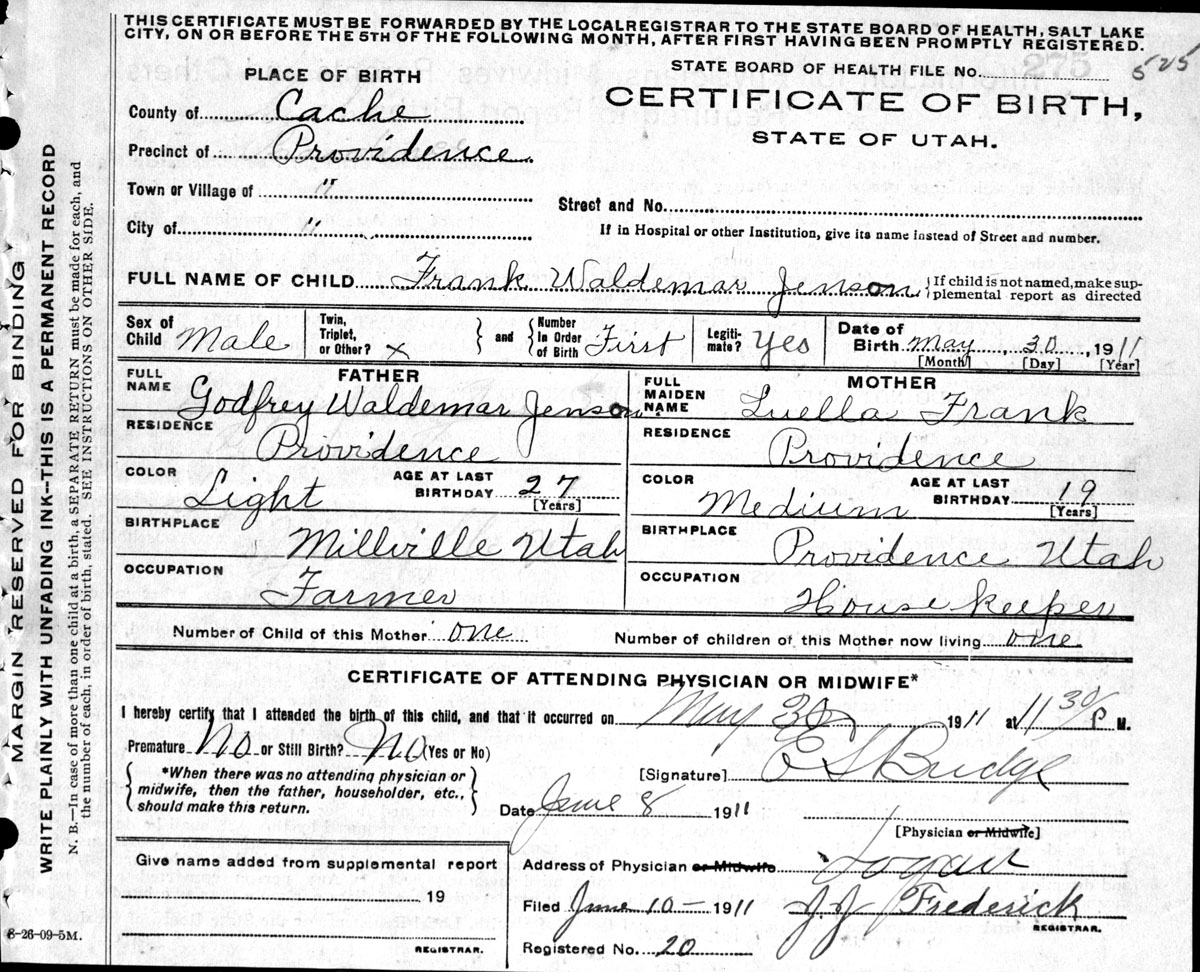 THIS CERTIFICATE MUST BE FORWARDED BY THE LOCAL REGISTRAR TO THE STATE BOARD OF HEALTH, SALT LAKE
CITY, ON OR BEFORE THE 5TH OF THE FOLLOWING MONTH, AFTER FIRST HAVING BEEN PROMPTLY REGISTERED.
STATE BOARD OF HEALTH FILE No. 275 525
PLACE OF BIRTH
CERTIFICATE OF BIRTH,
STATE OF UTAH.
County of Cache
Precinct of Providence
Town or Village of "
Street and No.
City of "
If in Hospital or other Institution, give its name instead of Street and number.
FULL NAME OF CHILD Frank Waldemar Jenson { If child is not named, make sup-
plemental report as directed
Sex of Child Male
Twin, Triplet, or Other? x } and { Number In Order of Birth First
Legiti- mate? Yes
Date of Birth May 30, 1911
[Month] [Day] [Year]
FATHER
FULL NAME Godfrey Waldemar Jenson
RESIDENCE Providence
COLOR Light AGE AT LAST BIRTHDAY 27
[Years]
BIRTHPLACE Millville Utah
OCCUPATION Farmer
MOTHER
FULL MAIDEN NAME Luella Frank
RESIDENCE Providence
COLOR Medium AGE AT LAST BIRTHDAY 19
[Years]
BIRTHPLACE Providence Utah
OCCUPATION House Keeper
Number of Child of this Mother one Number of children of this Mother now living one
CERTIFICATE OF ATTENDING PHYSICIAN OR MIDWIFE*
I hereby certify that I attended the birth of this child, and that it occurred on May 30 1911 at 11 30 P M.
Premature No or Still Birth? No (Yes or No)
{ *When there was no attending physician or
midwife, then the father, householder, etc.,
should make this return. }
[Signature] E S Budge
Date June 8 1911
[Physician or Midwife]
Give name added from supplemental report
19
REGISTRAR.
Address of Physician or Midwife Logan
Filed June 10 - 1911 J.J. Frederick
REGISTRAR.
Registered No. 20
8-26-09-5M.
MARGIN RESERVED FOR BINDING
WRITE PLAINLY WITH UNFADING INK--THIS IS A PERMANENT RECORD
N. B.--In case of more than one child at a birth, a SEPARATE RETURN must be made for each, and
the number of each, in order of birth, stated. SEE INSTRUCTIONS ON OTHER SIDE.